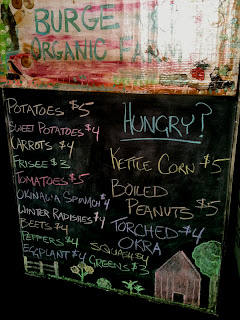 BURGE &
ORGANIC FARM
POTATOES $5
SWEET POTATOES $4
CARROTS $4
FRISEE $3
TOMATOES $5
OKINAWA SPINACH $4
WINTER RADISHES $4
BEETS $4
PEPPERS $4
EGGPLANT $4
SQUASH $4
GREENS $3
HUNGRY?
KETTLE CORN $5
BOILED
PEANUTS $5
TORCHED $4
OKRA